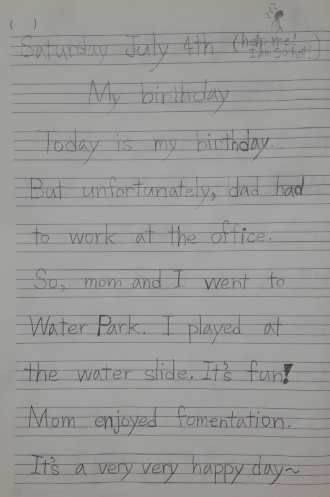 ( )
Saturday July 4th (help me! I am so hot!)
My birthday
Today is my birthday.
But unfortunately, dad had
to work at the office.
So, mom and I went to
Water Park. I played at
the water slide. It's fun!
Mom enjoyed fomentation.
It's a very very happy day~